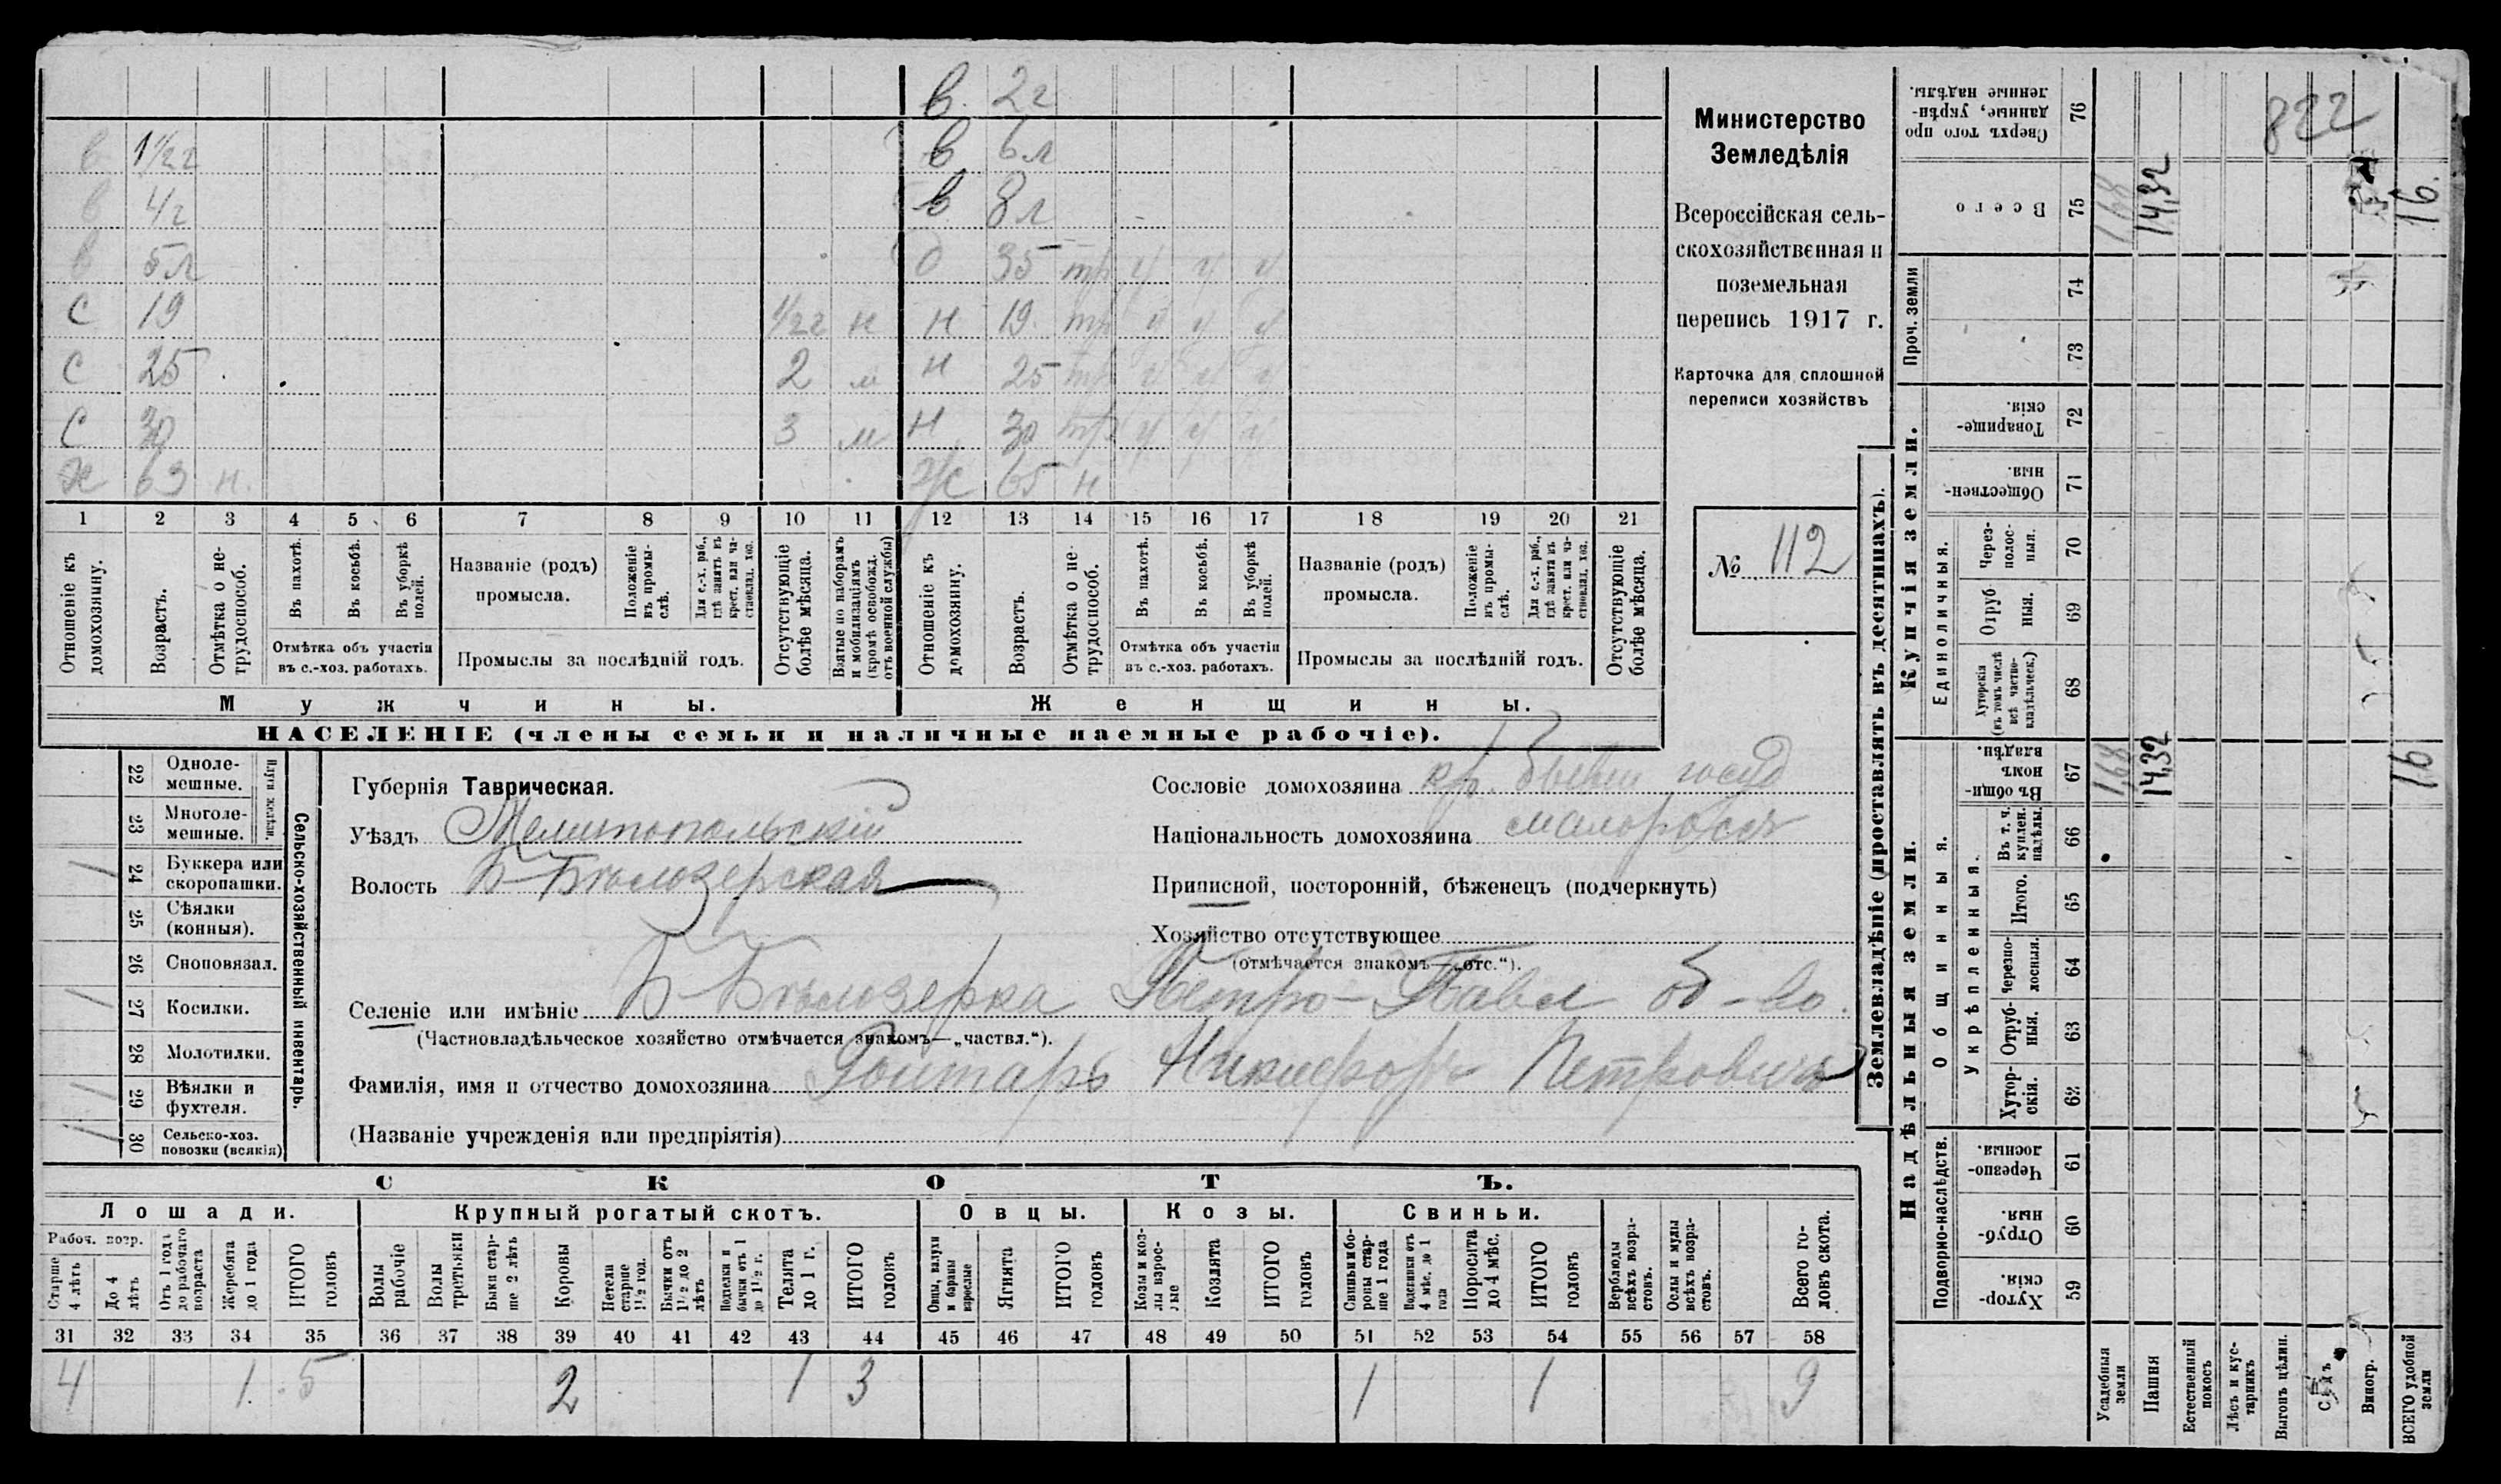 в. 2г
в 1½г в 6л
в 4г в 8л
в 5л 35 тр у у у
с 19 1/2г н н 19 тр у у у
с 25 2 м н 25 тр у у у
с 30 3 м н 30 тр у у у
х 63 н. ж 65 н
1 2 3 4 5 6 7 8 9 10 11 12 13 14 15 16 17 18 19 20 21
Отношеніе къ домохозяину.
Возрастъ.
Отмѣтка о нетрудоспособ.
Въ пахотѣ.
Въ косьбѣ.
Въ уборкѣ полей.
Отмѣтка объ участіи
въ с.-хоз. работахъ.
Названіе (родъ)
промысла.
Положеніе въ промыслѣ.
Для с.-х. раб., гдѣ занятъ въ крест. или частновлад. хоз.
Промыслы за послѣдній годъ.
Отсутствующіе болѣе мѣсяца.
Взятые по наборамъ и мобилизаціямъ (кромѣ освобожд. отъ военной службы)
Отношеніе къ домохозяину.
Возрастъ.
Отмѣтка о нетрудоспособ.
Въ пахотѣ.
Въ косьбѣ.
Въ уборкѣ полей.
Отмѣтка объ участіи
въ с.-хоз. работахъ.
Названіе (родъ)
промысла.
Положеніе въ промыслѣ.
Для с.-х. раб., гдѣ занята въ крест. или частновлад. хоз.
Промыслы за послѣдній годъ.
Отсутствующіе болѣе мѣсяца.
Мужчины. Женщины.
НАСЕЛЕНІЕ (члены семьи и наличные наемные рабочіе).
Министерство
Земледѣлія
Всероссійская сель-
скохозяйственная и
поземельная
перепись 1917 г.
Карточка для сплошной
переписи хозяйствъ
№ 112
Сельско-хозяйственный инвентарь.
Плуги желѣзн.
22 Однолемешные.
23 Многолемешные.
/ 24 Буккера или скоропашки.
25 Сѣялки (конныя).
26 Сноповязал.
/ 27 Косилки.
28 Молотилки.
/ 29 Вѣялки и фухтеля.
/ 30 Сельско-хоз. повозки (всякія)
Губернія Таврическая.
Уѣздъ Мелитопольскій
Волость Б-Бѣлозерская
Сословіе домохозяина кр. бывш госуд
Національность домохозяина малороссъ
Приписной, посторонній, бѣженецъ (подчеркнуть)
Хозяйство отсутствующее
(отмѣчается знакомъ—„отс.“).
Селеніе или имѣніе Б-Бѣлозерка Петро-Павл об-во.
(Частновладѣльческое хозяйство отмѣчается знакомъ—„частвл.“).
Фамилія, имя и отчество домохозяина Гонтарь Никифоръ Петровичъ
(Названіе учрежденія или предпріятія)
СКОТЪ.
Лошади. Крупный рогатый скотъ. Овцы. Козы. Свиньи.
Рабоч. возр.
Старше 4 лѣтъ
До 4 лѣтъ
Отъ 1 года до рабочаго возраста
Жеребята до 1 года
ИТОГО головъ
Волы рабочіе
Волы третьяки
Быки старше 2 лѣтъ
Коровы
Нетели старше 1½ год.
Бычки отъ 1½ до 2 лѣтъ
Подтелки и бычки отъ 1 до 1½ г.
Телята до 1 г.
ИТОГО головъ
Овцы, валухи и бараны взрослые
Ягнята
ИТОГО головъ
Козы и козлы взрослые
Козлята
ИТОГО головъ
Свиньи и боровы старше 1 года
Подсвинки отъ 4 мѣс. до 1 года
Поросята до 4 мѣс.
ИТОГО головъ
Верблюды всѣхъ возрастовъ.
Ослы и мулы всѣхъ возрастовъ.
Всего головъ скота.
31 32 33 34 35 36 37 38 39 40 41 42 43 44 45 46 47 48 49 50 51 52 53 54 55 56 57 58
4 1 5 2 1 3 1 1 9
Землевладѣніе (проставлять въ десятинахъ).
Надѣльныя земли. Купчія земли.
Подворно-наслѣдств.
Общинныя.
Укрѣпленныя.
Единоличныя.
Проч. земли
59 Хуторскія.
60 Отрубныя.
61 Черезполосныя.
62 Хуторскія.
63 Отрубныя.
64 Черезполосныя.
65 Итого.
66 Въ т. ч. куплен. надѣлы.
67 Въ общинномъ владѣн.
68 Хуторскія (въ томъ числѣ всѣ частновладѣльческ.)
69 Отрубныя.
70 Черезполосныя.
71 Общественныя.
72 Товарищескія.
73
74
75 Всего
76 Сверхъ того проданные, укрѣпленные надѣлы.
Усадебныя земли 1,68 1,68
Пашня 14,32 14,32
Естественный покосъ
Лѣсъ и кустарникъ
Выгонъ цѣлин.
Виногр.
ВСЕГО удобной земли 16 16.
822